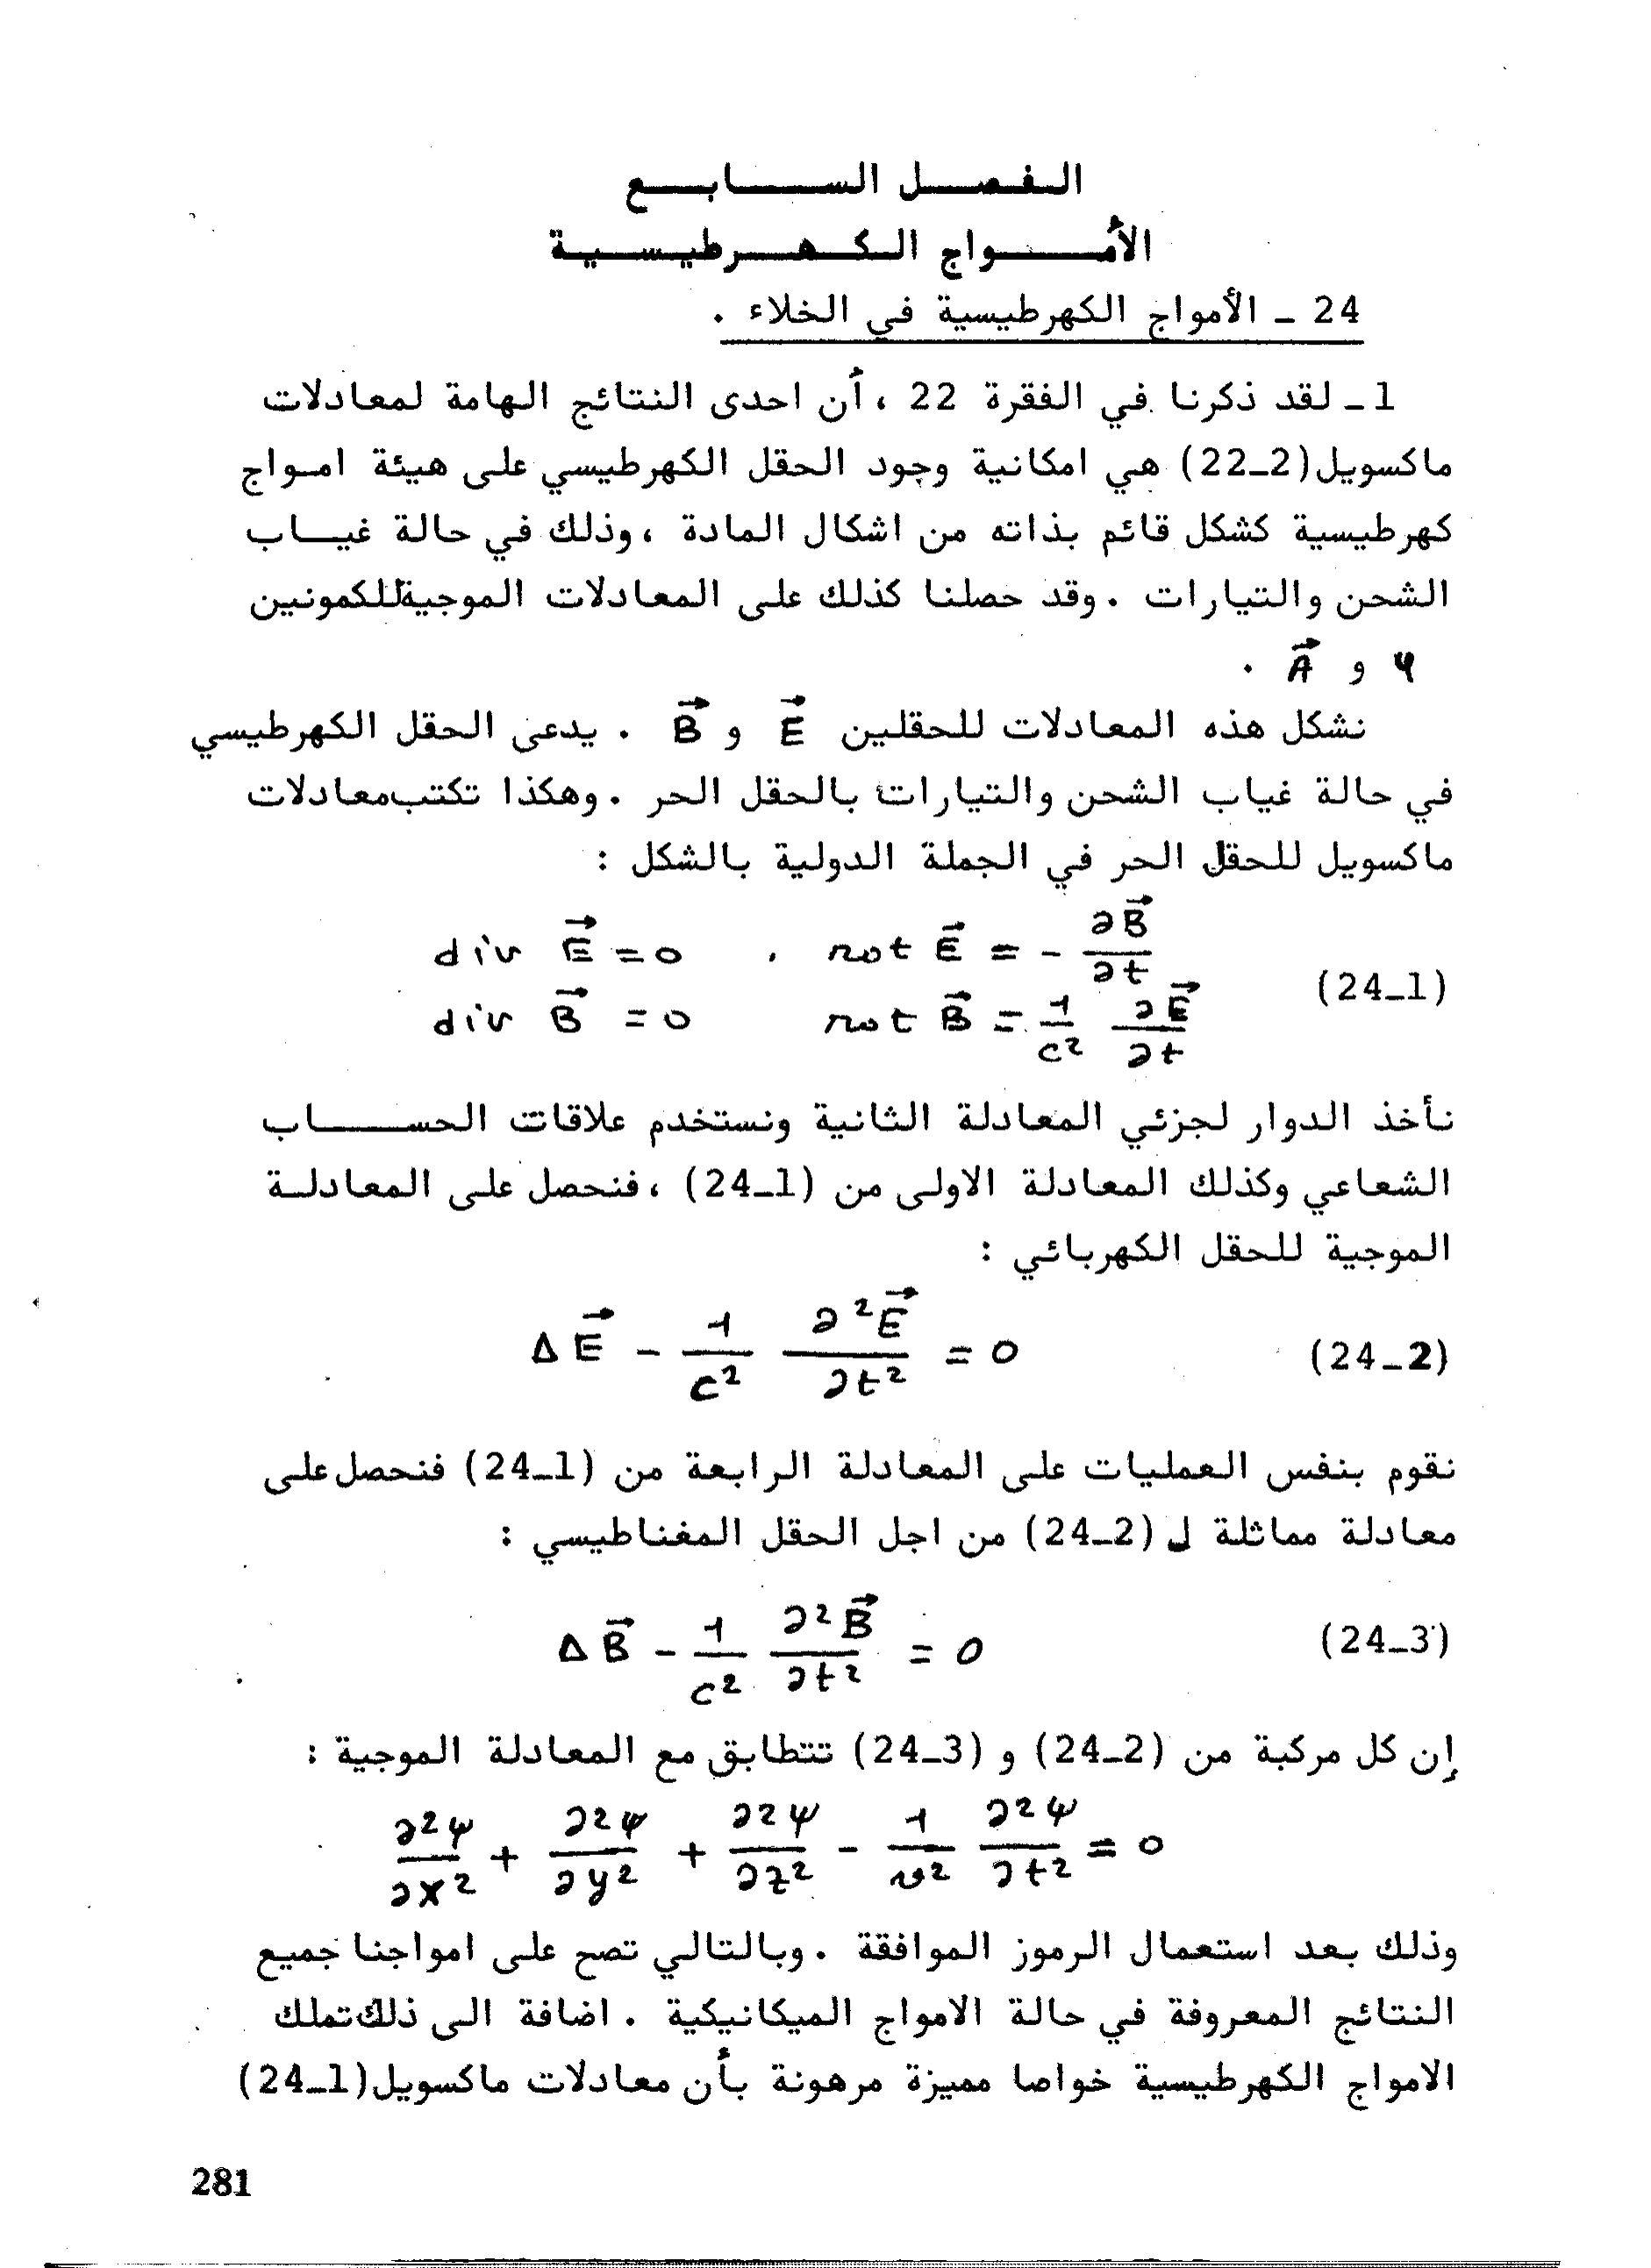 الفصل السابع
الأمواج الكهرطيسية
24 - الأمواج الكهرطيسية في الخلاء .
1- لقد ذكرنا في الفقرة 22 ، أن احدى النتائج الهامة لمعادلات
ماكسويل(2-22) هي امكانية وجود الحقل الكهرطيسي على هيئة امواج
كهرطيسية كشكل قائم بذاته من اشكال المادة ، وذلك في حالة غياب
الشحن والتيارات . وقد حصلنا كذلك على المعادلات الموجية للكمونين
φ و A⃗ .
نشكل هذه المعادلات للحقلين E⃗ و B⃗ . يدعى الحقل الكهرطيسي
في حالة غياب الشحن والتيارات بالحقل الحر . وهكذا تكتب معادلات
ماكسويل للحقل الحر في الجملة الدولية بالشكل :
div E⃗ = 0 , rot E⃗ = - ∂B⃗/∂t
(24-1)
div B⃗ = 0 rot B⃗ = 1/c² ∂E⃗/∂t
نأخذ الدوار لجزئي المعادلة الثانية ونستخدم علاقات الحساب
الشعاعي وكذلك المعادلة الاولى من (1-24) ، فنحصل على المعادلة
الموجية للحقل الكهربائي :
ΔE⃗ - 1/c² ∂²E⃗/∂t² = 0 (24-2)
نقوم بنفس العمليات على المعادلة الرابعة من (1-24) فنحصل على
معادلة مماثلة ل (2-24) من اجل الحقل المغناطيسي :
ΔB⃗ - 1/c² ∂²B⃗/∂t² = 0 (24-3)
إن كل مركبة من (2-24) و (3-24) تتطابق مع المعادلة الموجية :
∂²ψ/∂x² + ∂²ψ/∂y² + ∂²ψ/∂z² - 1/v² ∂²ψ/∂t² = 0
وذلك بعد استعمال الرموز الموافقة . وبالتالي تصح على امواجنا جميع
النتائج المعروفة في حالة الامواج الميكانيكية . اضافة الى ذلك تملك
الامواج الكهرطيسية خواصا مميزة مرهونة بأن معادلات ماكسويل(1-24)
281